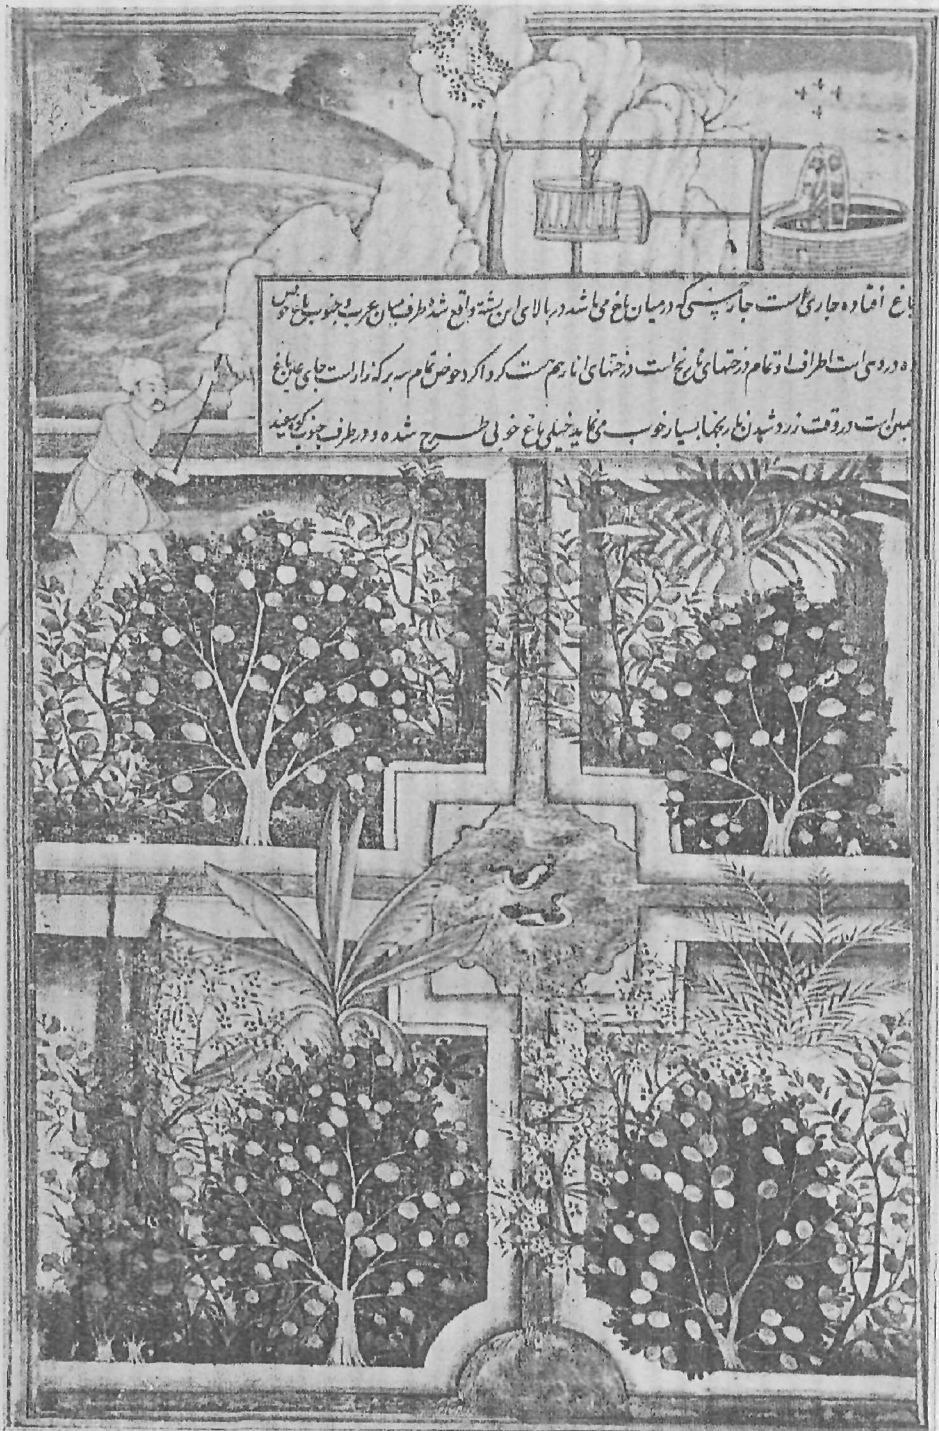 باغ افتاده جاری است چارچمنی که در میان باغ می باشد در بالای این پشته واقع شده طرف میان غرب و جنوب باغ حوض
ده در دهی است اطراف او تمام درختهای نارنج است درختهای انار هم هست کرداکرد حوض تمام سه برکه زار است جای عین باغ
همین است در وقت زرد شدن نارنجها بسیار خوب می نماید خیلی باغ خوبی طرح شده و در طرف جنوب کوه سفید